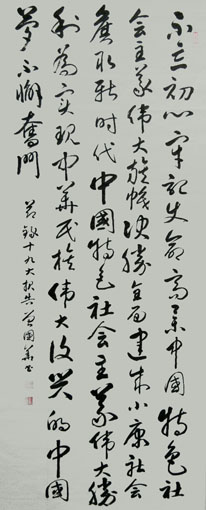 不忘初心牢记使命高举中国特色社
会主义伟大旗帜决胜全面建成小康社会
夺取新时代中国特色社会主义伟大胜
利为实现中华民族伟大复兴的中国
梦不懈奋斗
节录十九大报告 国华书